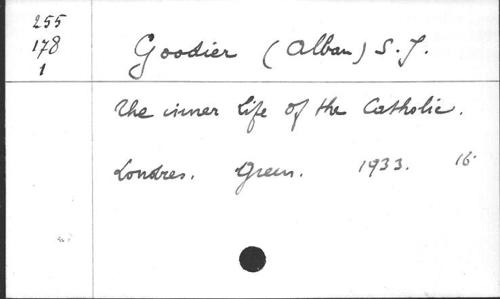 255
178
1
Goodier (Alban) S.J.
The inner Life of the Catholic.
Londres. Green. 1933. 16